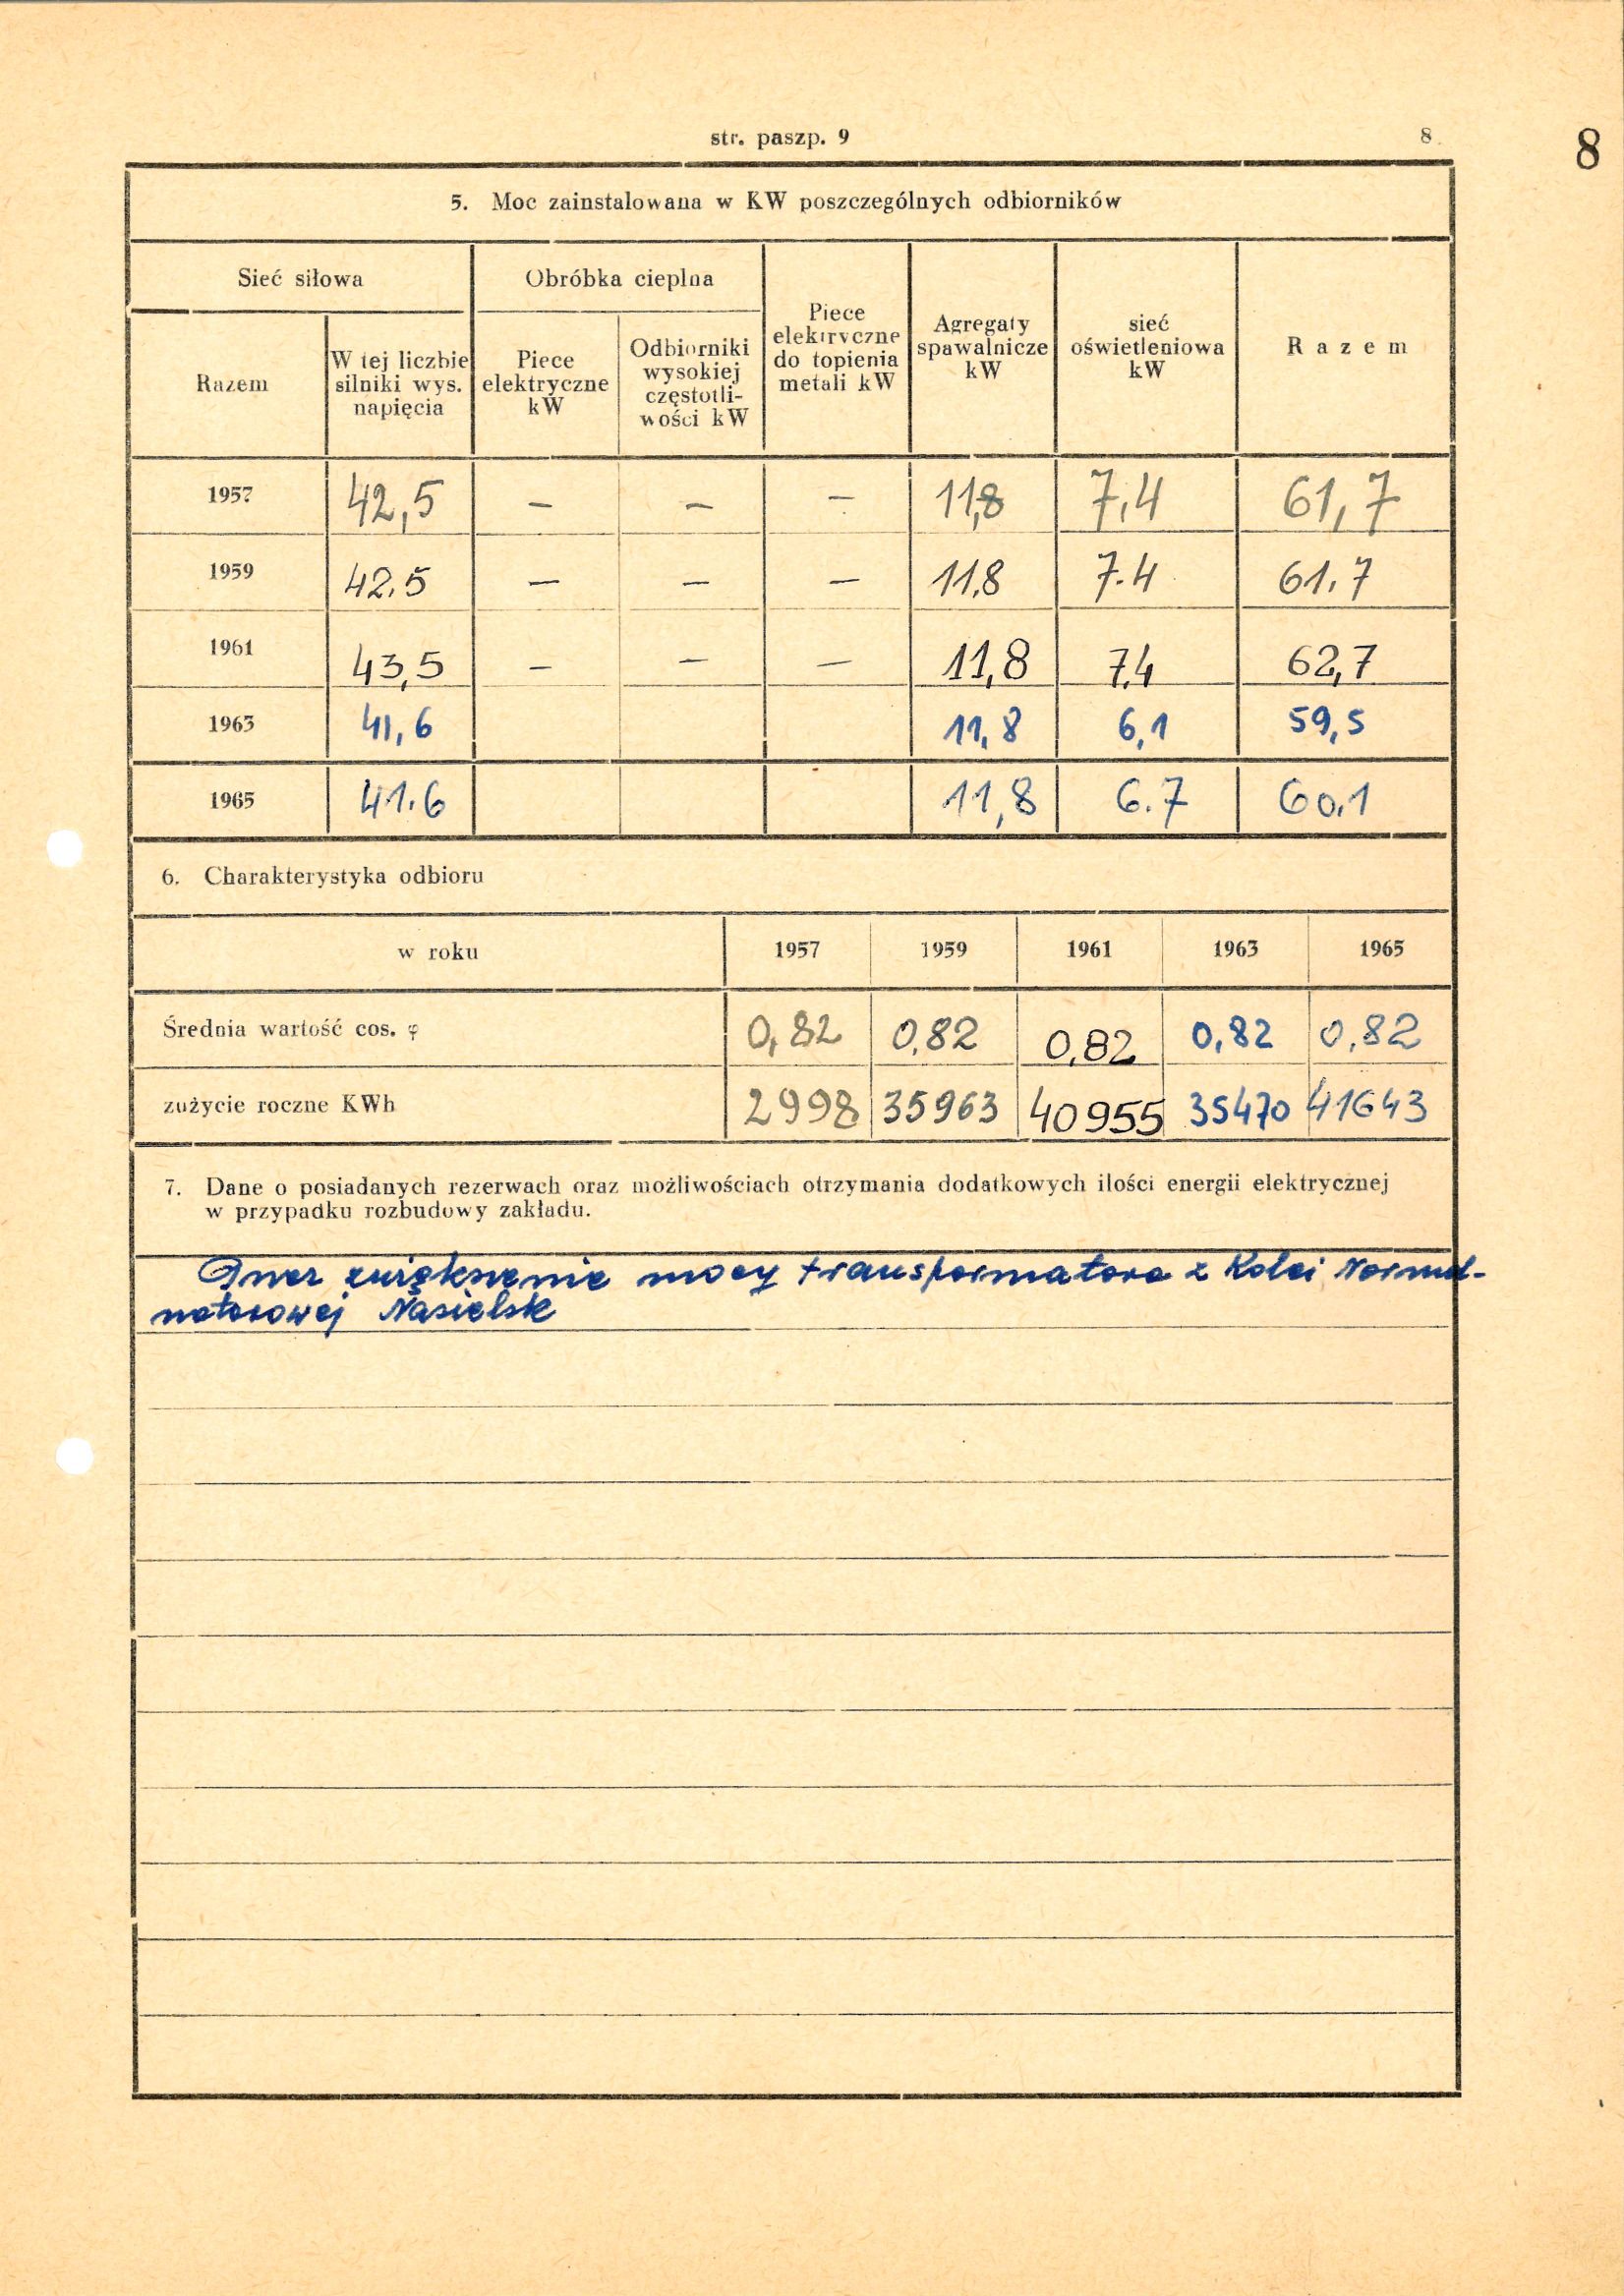 str. paszp. 9
8
8
5. Moc zainstalowana w KW poszczególnych odbiorników
Sieć siłowa
Obróbka cieplna
Piece elektryczne do topienia metali kW
Agregaty spawalnicze kW
sieć oświetleniowa kW
Razem
Razem
W tej liczbie silniki wys. napięcia
Piece elektryczne kW
Odbiorniki wysokiej częstotliwości kW
1957 42,5 — — — 11,8 7,4 61,7
1959 42,5 — — — 11,8 7.4 61,7
1961 43,5 — — — 11,8 7,4 62,7
1963 41,6 11,8 6,1 59,5
1965 41.6 11,8 6.7 60,1
6. Charakterystyka odbioru
w roku 1957 1959 1961 1963 1965
Średnia wartość cos. φ 0,82 0,82 0,82 0,82 0,82
zużycie roczne KWh 2998 35963 40955 35470 41643
7. Dane o posiadanych rezerwach oraz możliwościach otrzymania dodatkowych ilości energii elektrycznej
w przypadku rozbudowy zakładu.
mocy transformatora z Kolei
Nasielsk